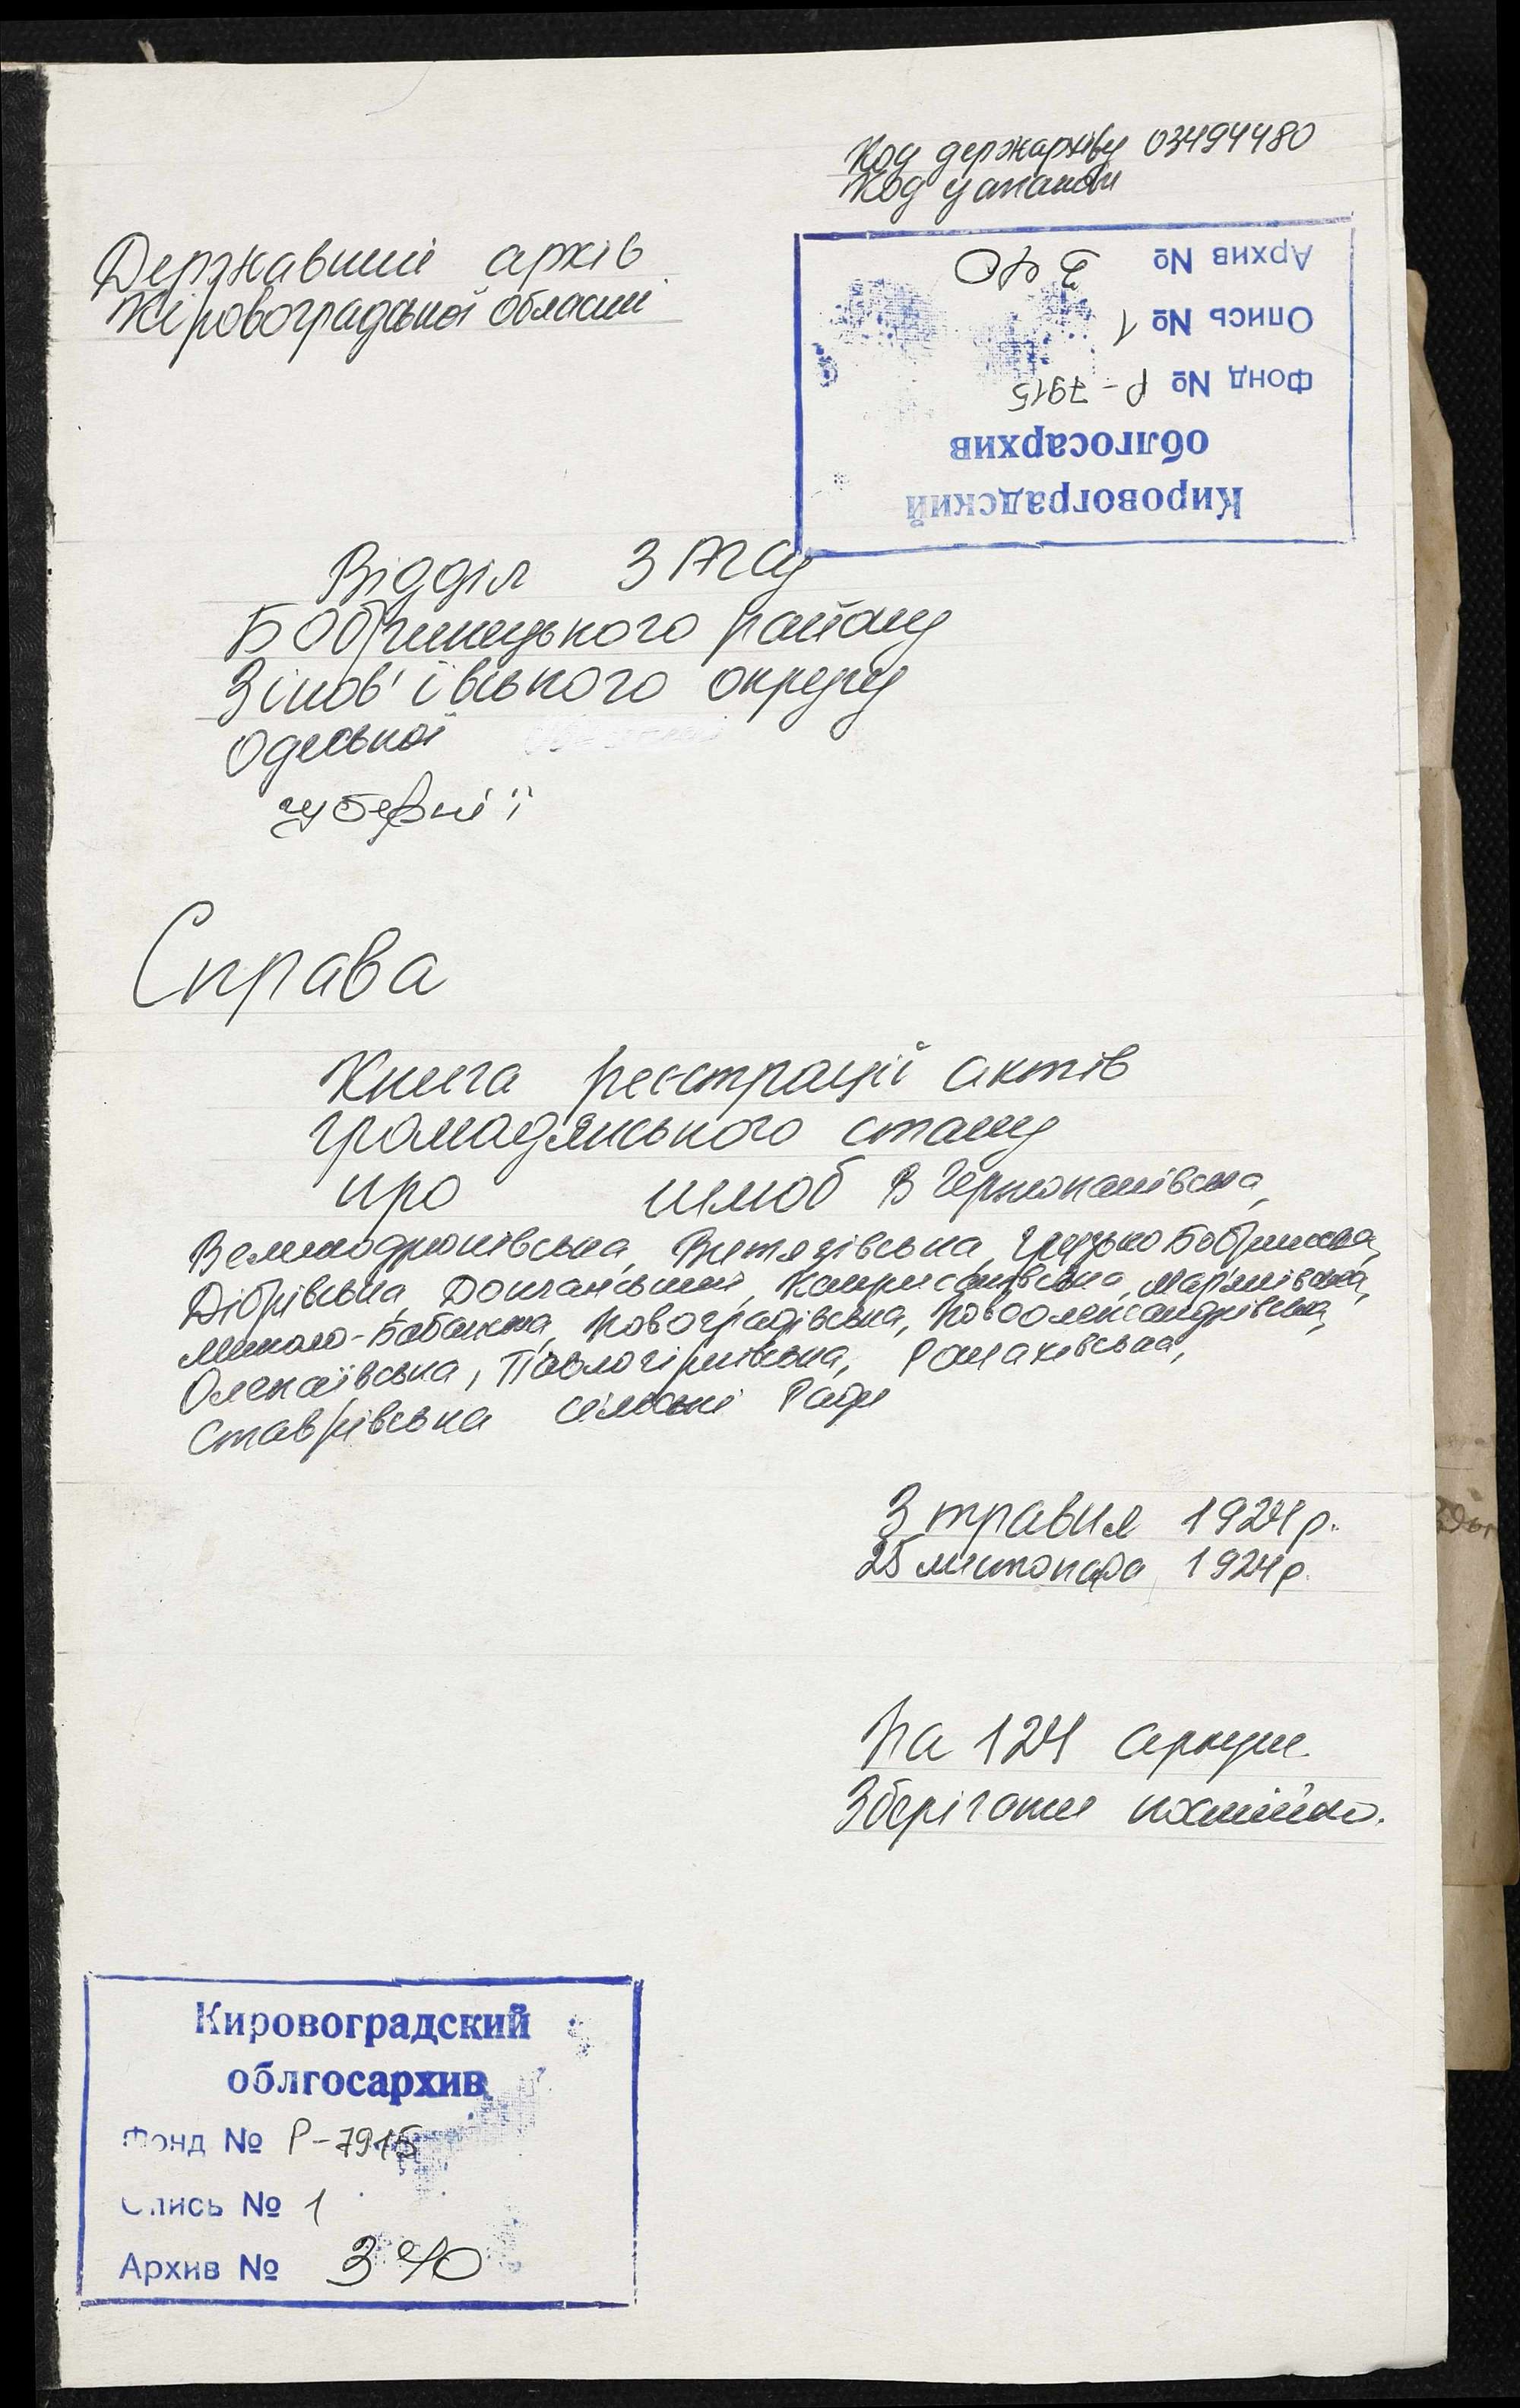 Код держархіву 03494480
Код установи
Державний архів
Кіровоградської області
Архив № 340
Опись № 1
Фонд № Р-7915
облгосархив
Кировоградский
Відділ ЗАГСу
Бобринецького району
Зінов'ївського округу
Одеської
губернії
Справа
Книга реєстрації актів
громадянського стану
про шлюб
Великодрюківська, Витязівська, Грузько Бобринська,
Дібрівська, Мар'янівська,
Миколо-Бабанка, Новоградівська, Новоолександрівська,
Олексіївська, Павлогірківська,
Ставрівська сільські Ради
3 травня 1924р.
25 листопада 1924р.
На 124 аркуш.
Зберігати постійно.
Кировоградский
облгосархив
Фонд № Р-7915
Опись № 1
Архив № 340